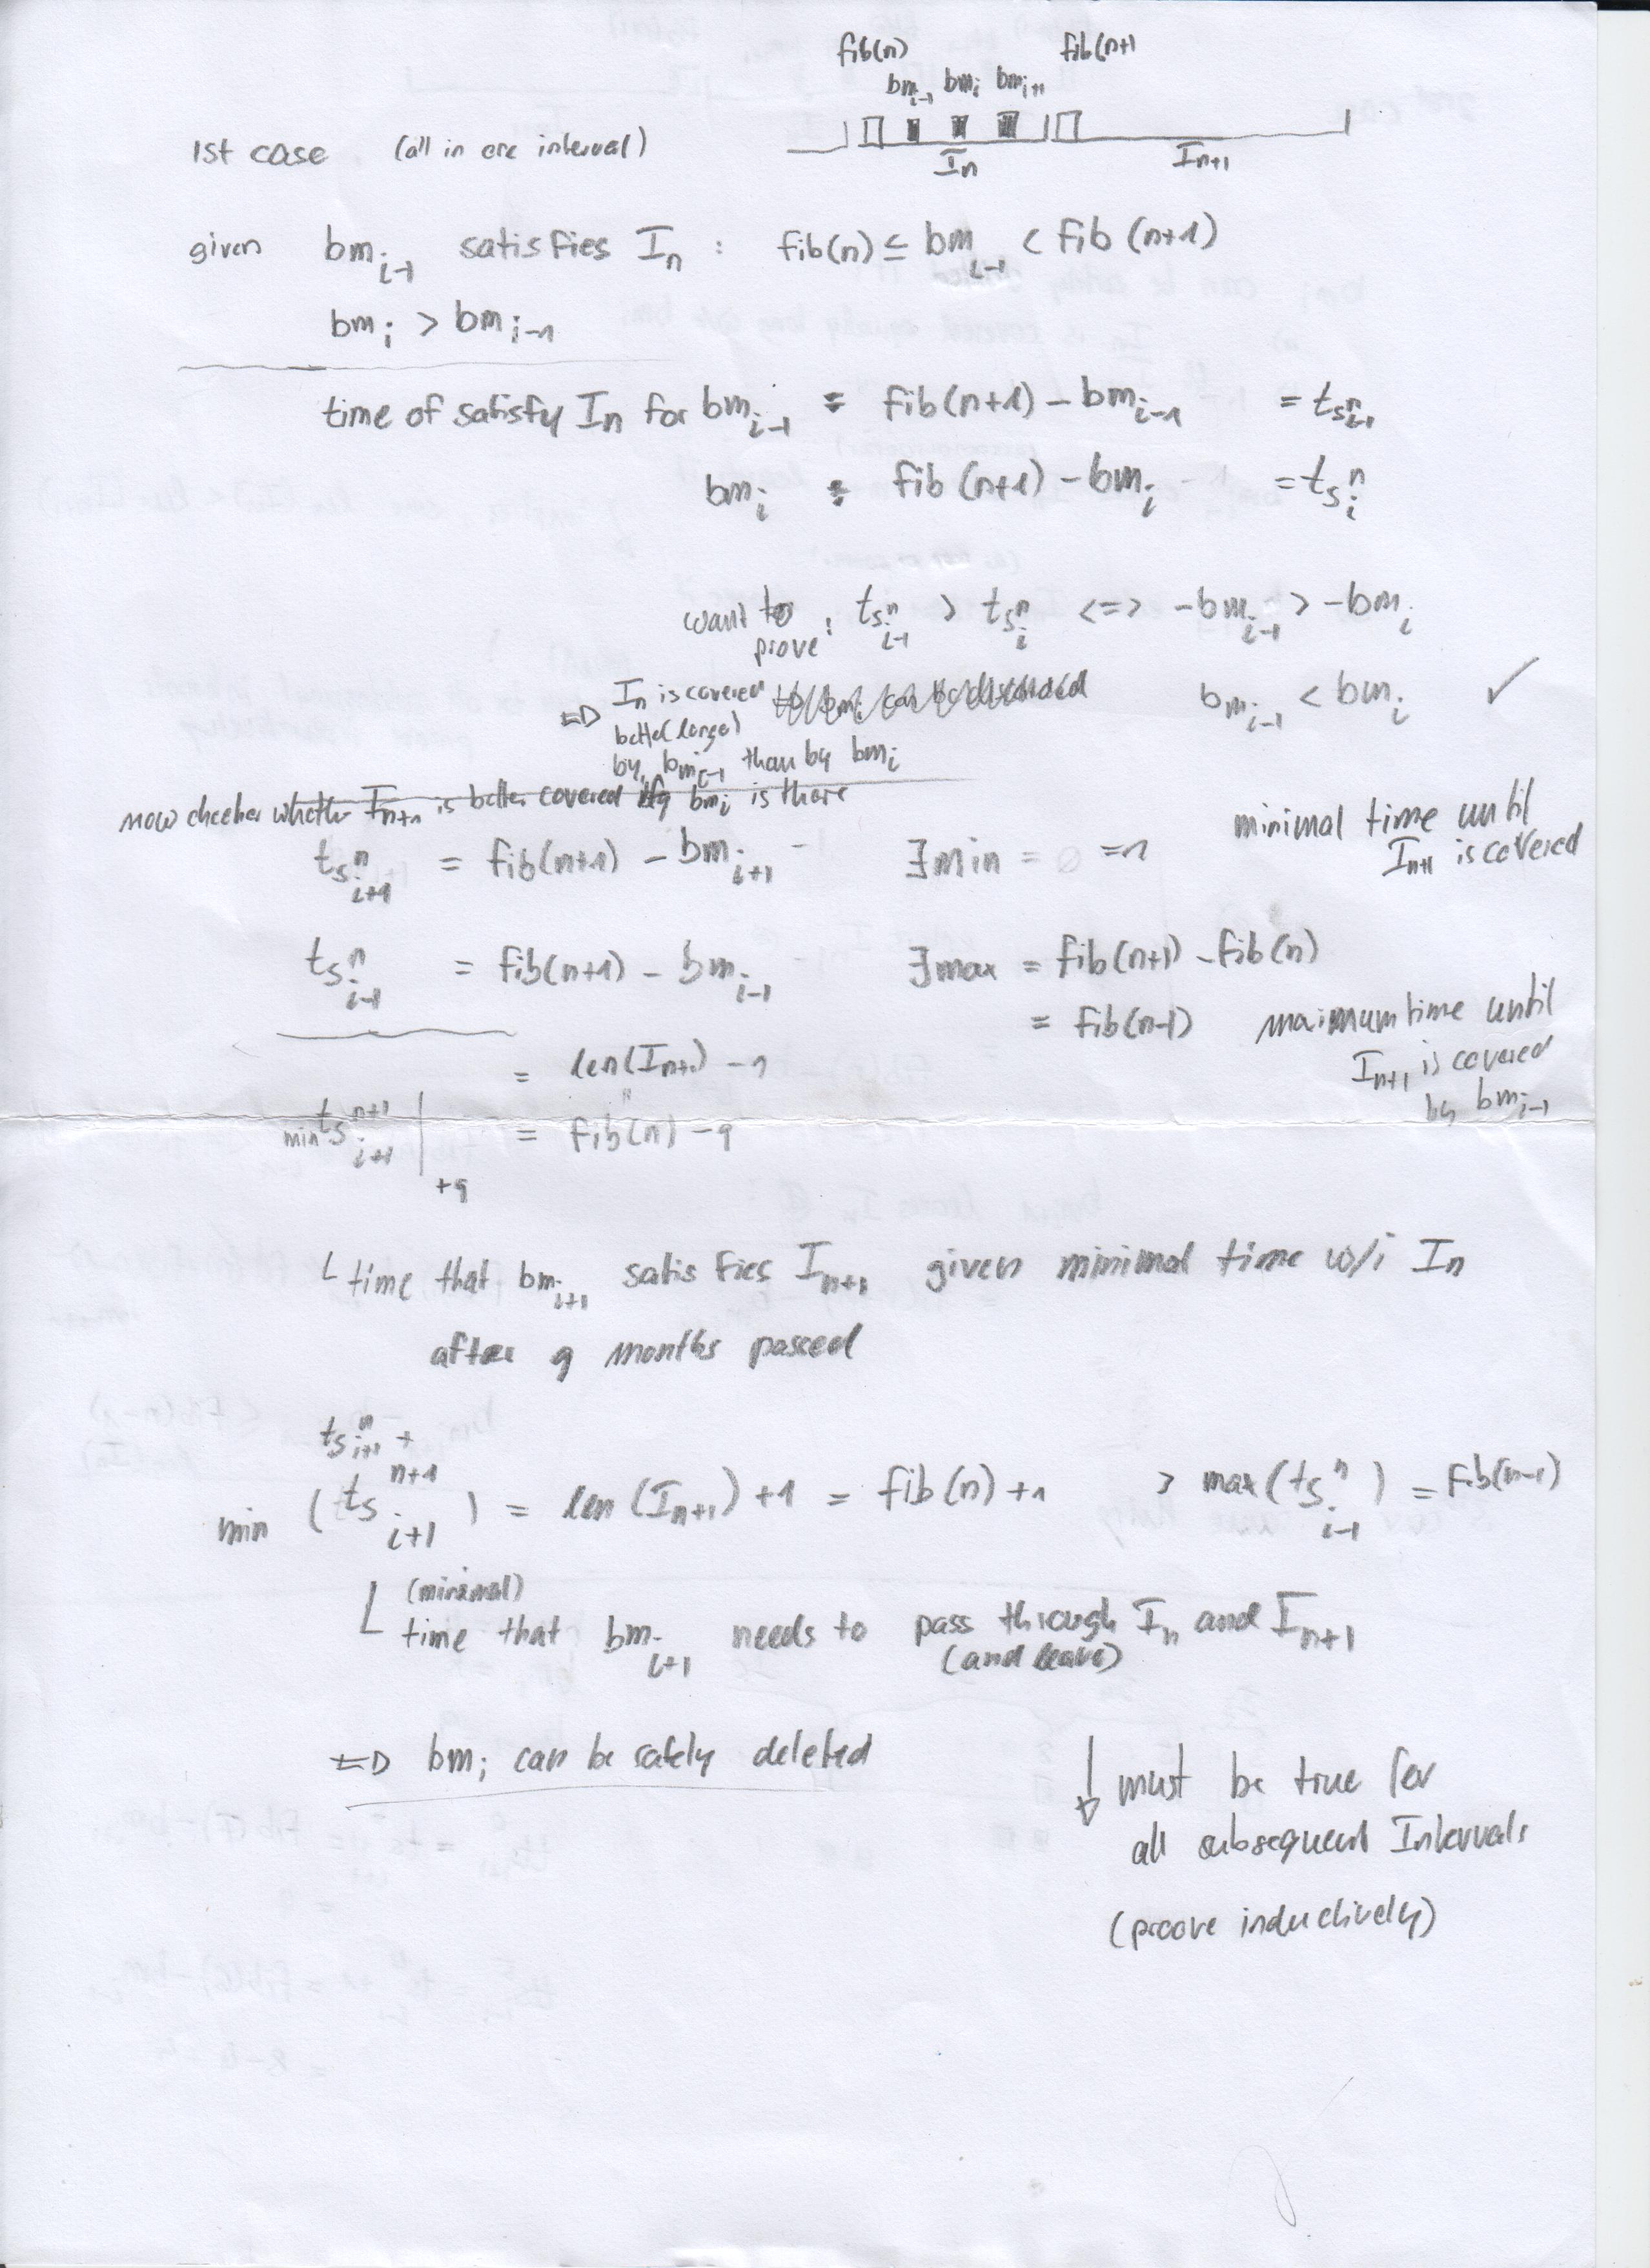 fib(n) fib(n+1
bm_{i-1} bm_i bm_{i+1}
1st case (all in one interval)
I_n I_{n+1}
given bm_{i-1} satisfies I_n : fib(n) ≤ bm_{i-1} < fib(n+1)
bm_i > bm_{i-1}
time of satisfy I_n for bm_{i-1} : fib(n+1) - bm_{i-1} = ts^n_{i-1}
bm_i : fib(n+1) - bm_i = ts^n_i
want to prove: ts^n_{i-1} > ts^n_i <=> -bm_{i-1} > -bm_i
bm_{i-1} < bm_i ✓
=> I_n is covered
better (longer)
by bm_{i-1} than by bm_i
now check whether I_{n+1} is better covered if bm_i is there
ts^n_{i+1} = fib(n+1) - bm_{i+1} ∃min = 0 = 1
minimal time until
I_{n+1} is covered
ts^n_{i-1} = fib(n+1) - bm_{i-1} ∃max = fib(n+1) - fib(n)
= fib(n-1)
maximum time until
I_{n+1} is covered
by bm_{i-1}
= len(I_{n+1}) - 9
min ts^{n+1}_{i+1} |_{+9} = fib(n) - 9
└ time that bm_{i+1} satisfies I_{n+1} given minimal time w/i I_n
after 9 months passed
min (ts^n_{i+1} + ts^{n+1}_{i+1}) = len(I_{n+1}) + 1 = fib(n) + 1 > max(ts^n_{i-1}) = fib(n-1)
└ (minimal)
time that bm_{i+1} needs to pass through I_n and I_{n+1}
(and leave)
=> bm_i can be safely deleted
↓ must be true for
all subsequent Intervals
(proove inductively)